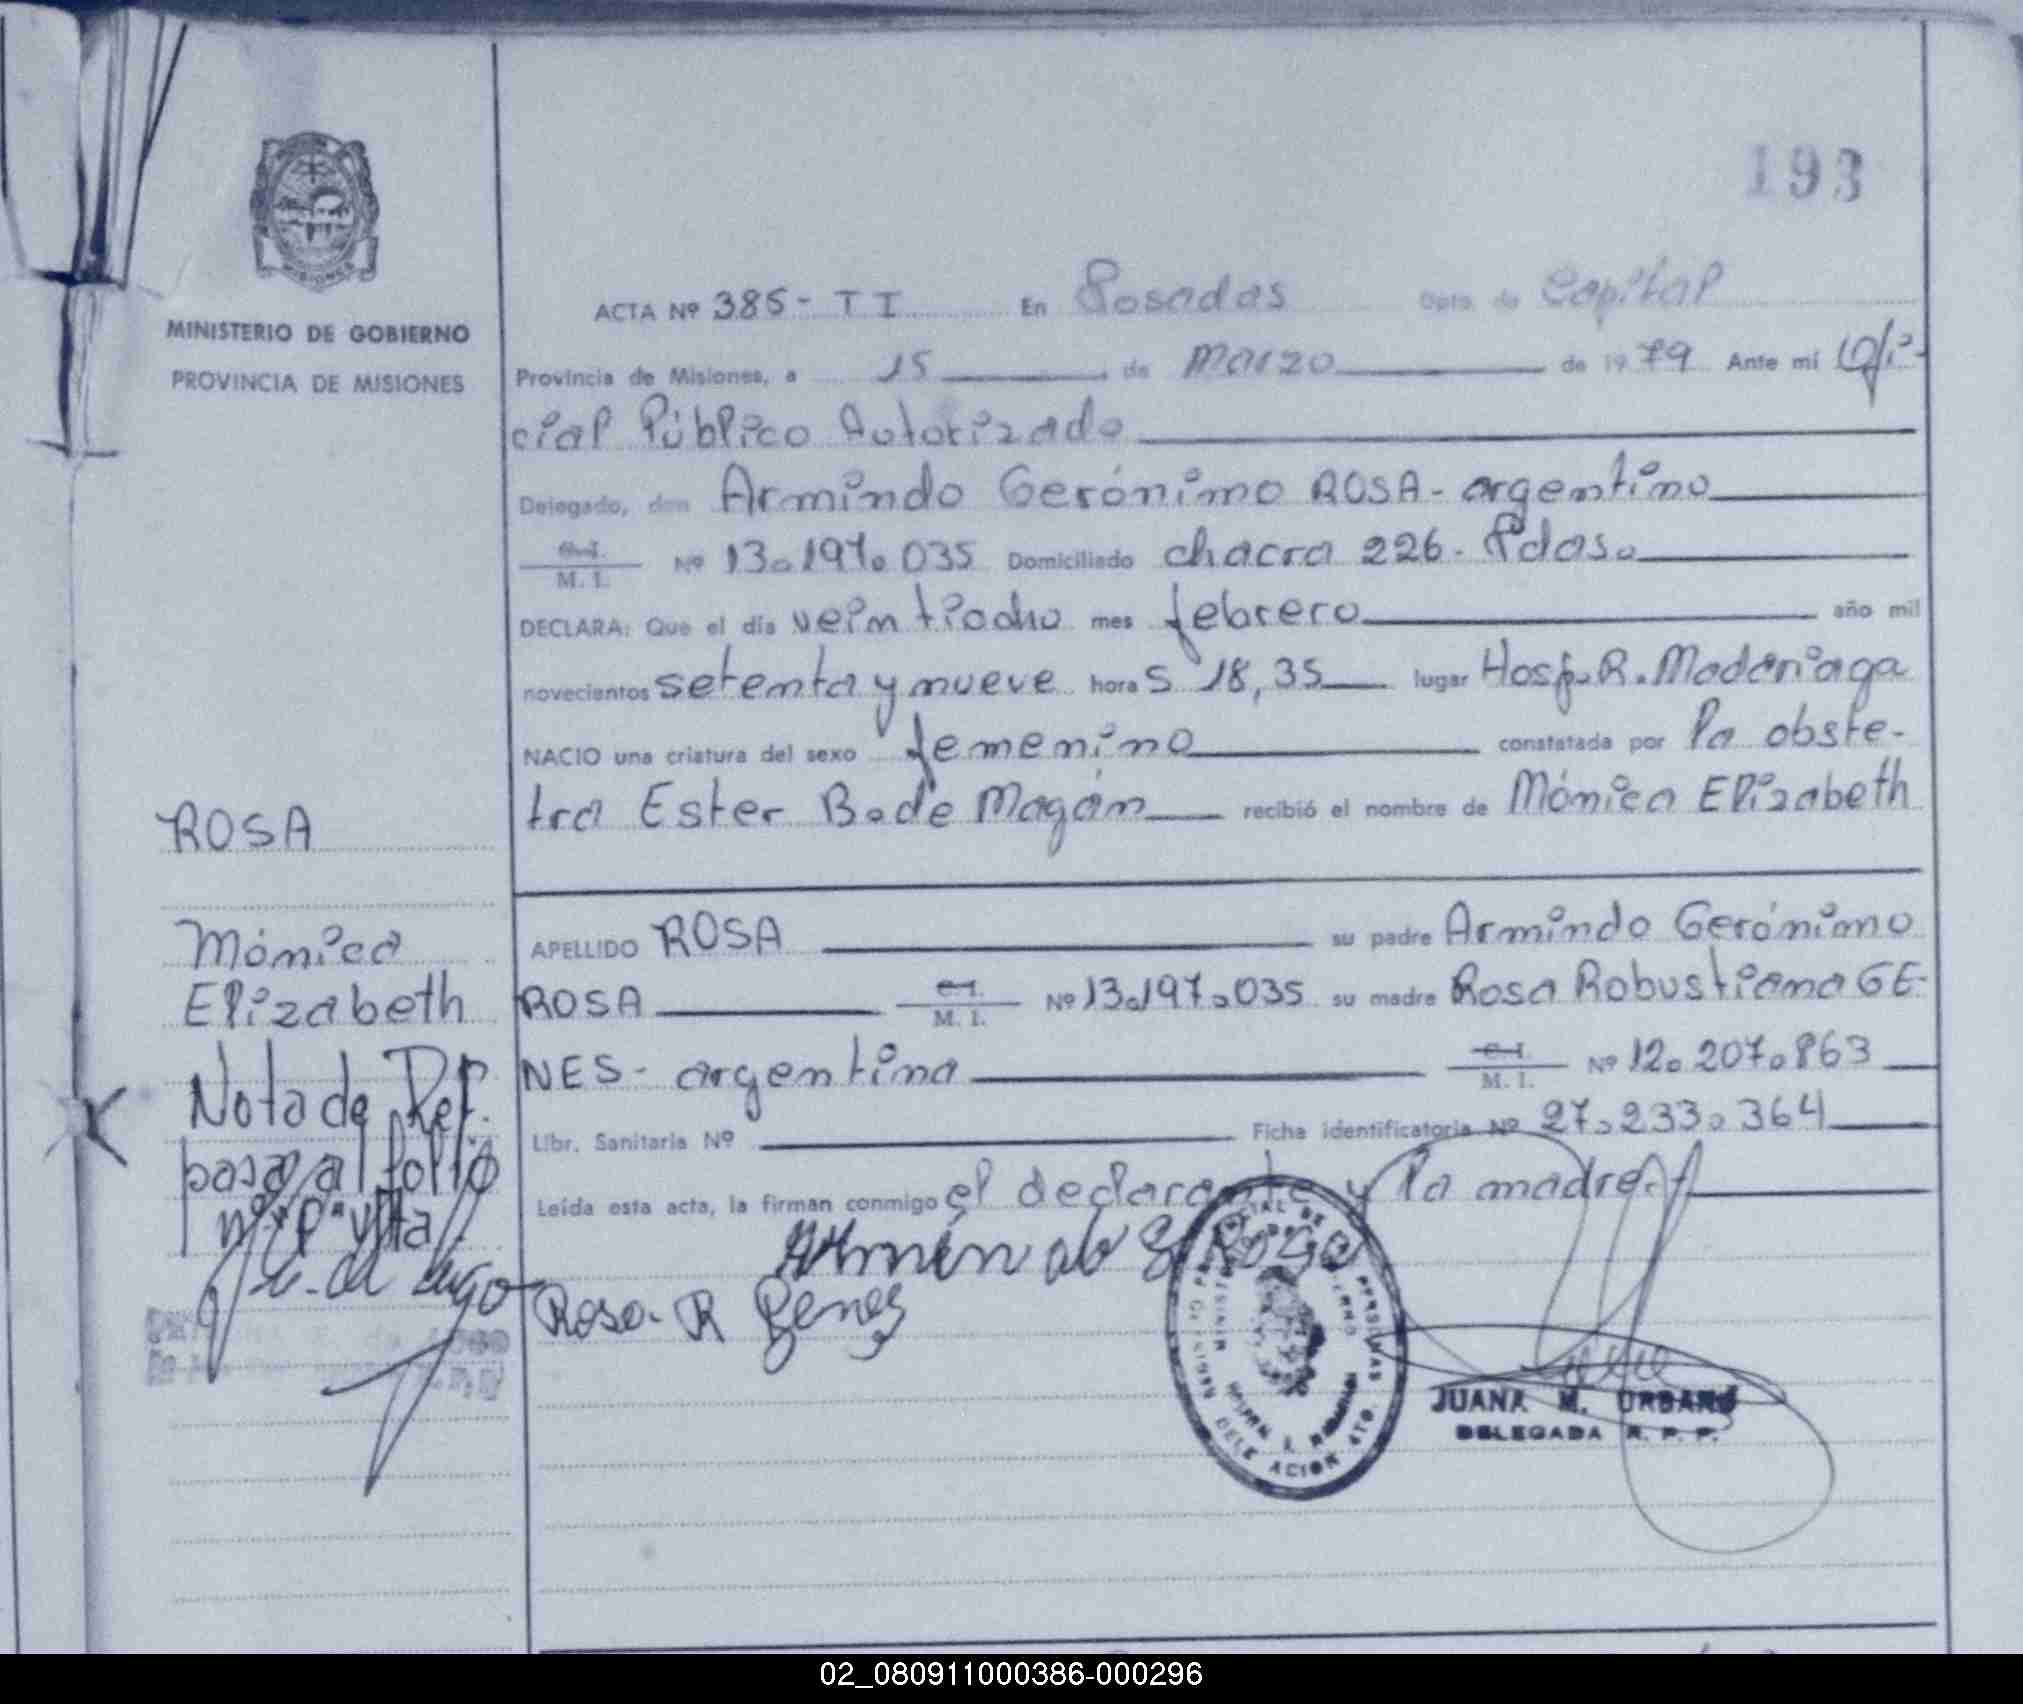 193
MINISTERIO DE GOBIERNO
PROVINCIA DE MISIONES
ACTA Nº 385 - T I En Posadas Dpto. de Capital
Provincia de Misiones, a 15 de Marzo de 1979 Ante mí Ofi-
cial Público Autorizado
Delegado, don Armindo Gerónimo ROSA - argentino
C.I. M. I. Nº 13.197.035 Domiciliado chacra 226 - Pdas.
DECLARA: Que el día veintiocho mes febrero año mil
novecientos setenta y nueve horas 18,35 lugar Hosp. R. Madariaga
NACIO una criatura del sexo femenino constatada por la obste-
tra Ester B. de Magán recibió el nombre de Mónica Elizabeth
APELLIDO ROSA su padre Armindo Gerónimo
ROSA C.I. M. I. Nº 13.197.035 su madre Rosa Robustiana GE-
NES - argentina C.I. M. I. Nº 12.207.863
Libr. Sanitaria Nº Ficha identificatoria Nº 27.233.364
Leída esta acta, la firman conmigo el declarante y la madre.
Armindo G Rosa
Rosa R Genes
JUANA M. URBANO
DELEGADA R. P. P.
ROSA
Mónica
Elizabeth
Nota de Ref.
pasa al folio
02_080911000386-000296